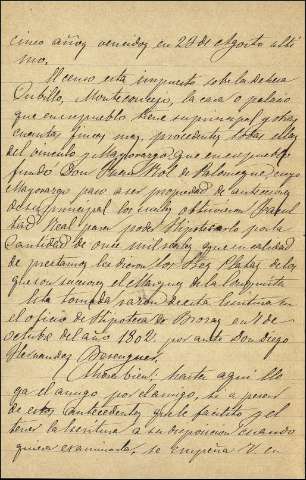 cinco años vencidos en 28 de Agosto últi
mo.
El censo esta impuesto sobre la dehesa
Cubillo, Monteconcejo, la casa o palacio
que en su pueblo tiene su principal y otras
cuantas fincas mas, procedentes todas ellas
del vinculo y Mayorazgo que en su pueblo
fundó Don Juan Rol de Palomeque, cuyo
Mayorazgo paso a ser propiedad de antecesores
de su principal los cuales obtuvieron Facul
tad Real para poder hipotecarlo por la
cantidad de once mil reales, que en calidad
de prestamo les dieron los
que son sucesores el Marques de la Conquista
Esta tomada razon de esta escritura en
el oficio de Hipotecas de Brozas en 1º de
octubre del año 1802, por ante Don Diego
Hernandez Berenguer.
Ahora bien: hasta aqui lle
ga el amigo por el amigo, si a pesar
de estos antecedentes que le facilito y el
tener la escritura a su disposicion cuando
quiera examinarla, se empeña V. en